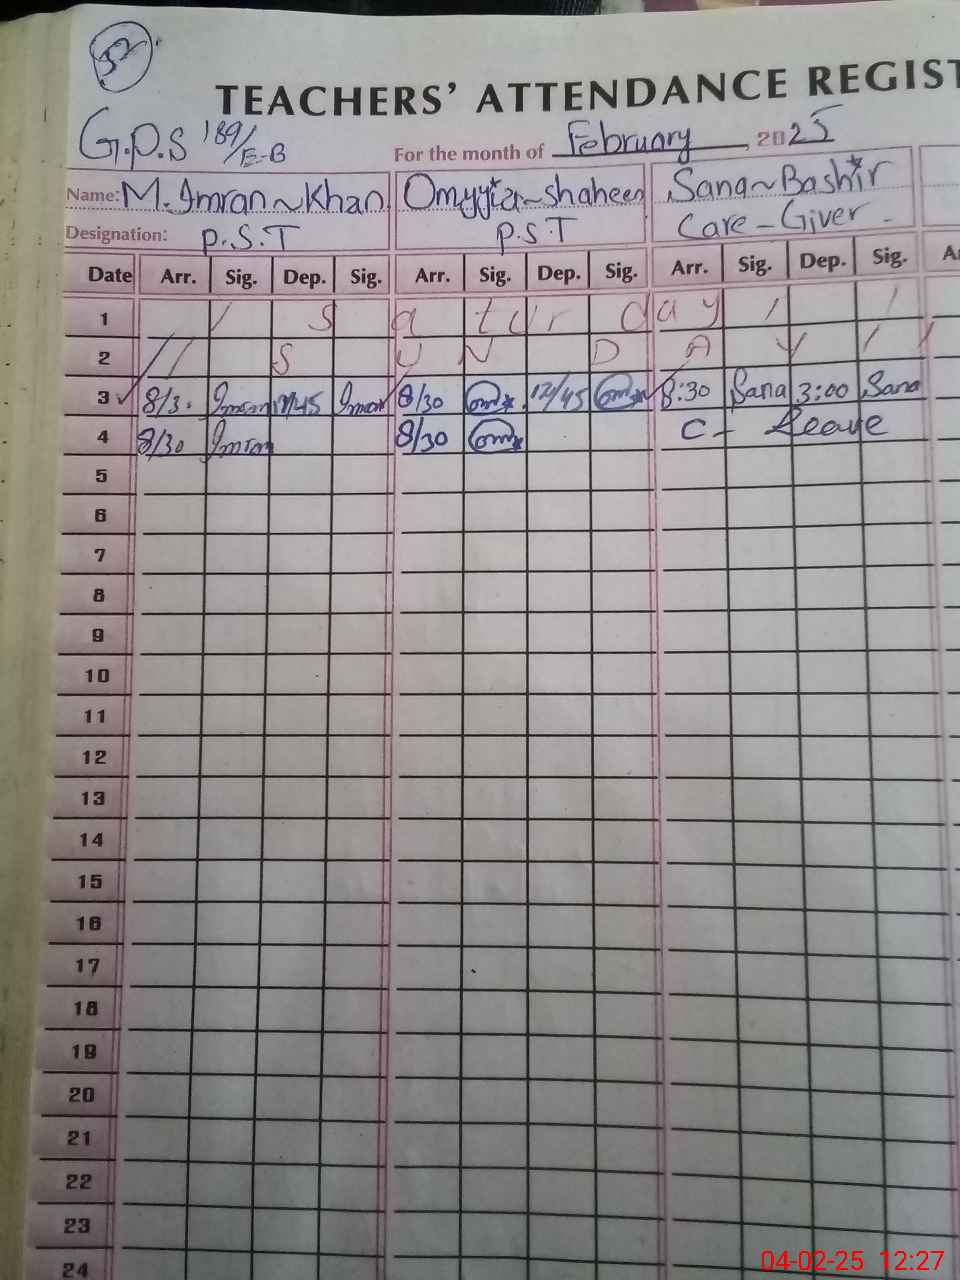 52
TEACHERS' ATTENDANCE REGIST
G.P.S 189/E-B
For the month of February, 2025
Name: M. Imran~Khan Omyyia~Shaheen Sana~Bashir
Designation: P.S.T P.S.T Care-Giver-
Date Arr. Sig. Dep. Sig. Arr. Sig. Dep. Sig. Arr. Sig. Dep. Sig.
1 / S a tur day / /
2 // S U N D A Y / /
3 8/30 Imran 12/45 Imran 8/30 12/45 8:30 Sana 3:00 Sana
4 8/30 Imran 8/30 C- Leave
5
6
7
8
9
10
11
12
13
14
15
16
17
18
19
20
21
22
23
24
04-02-25 12:27